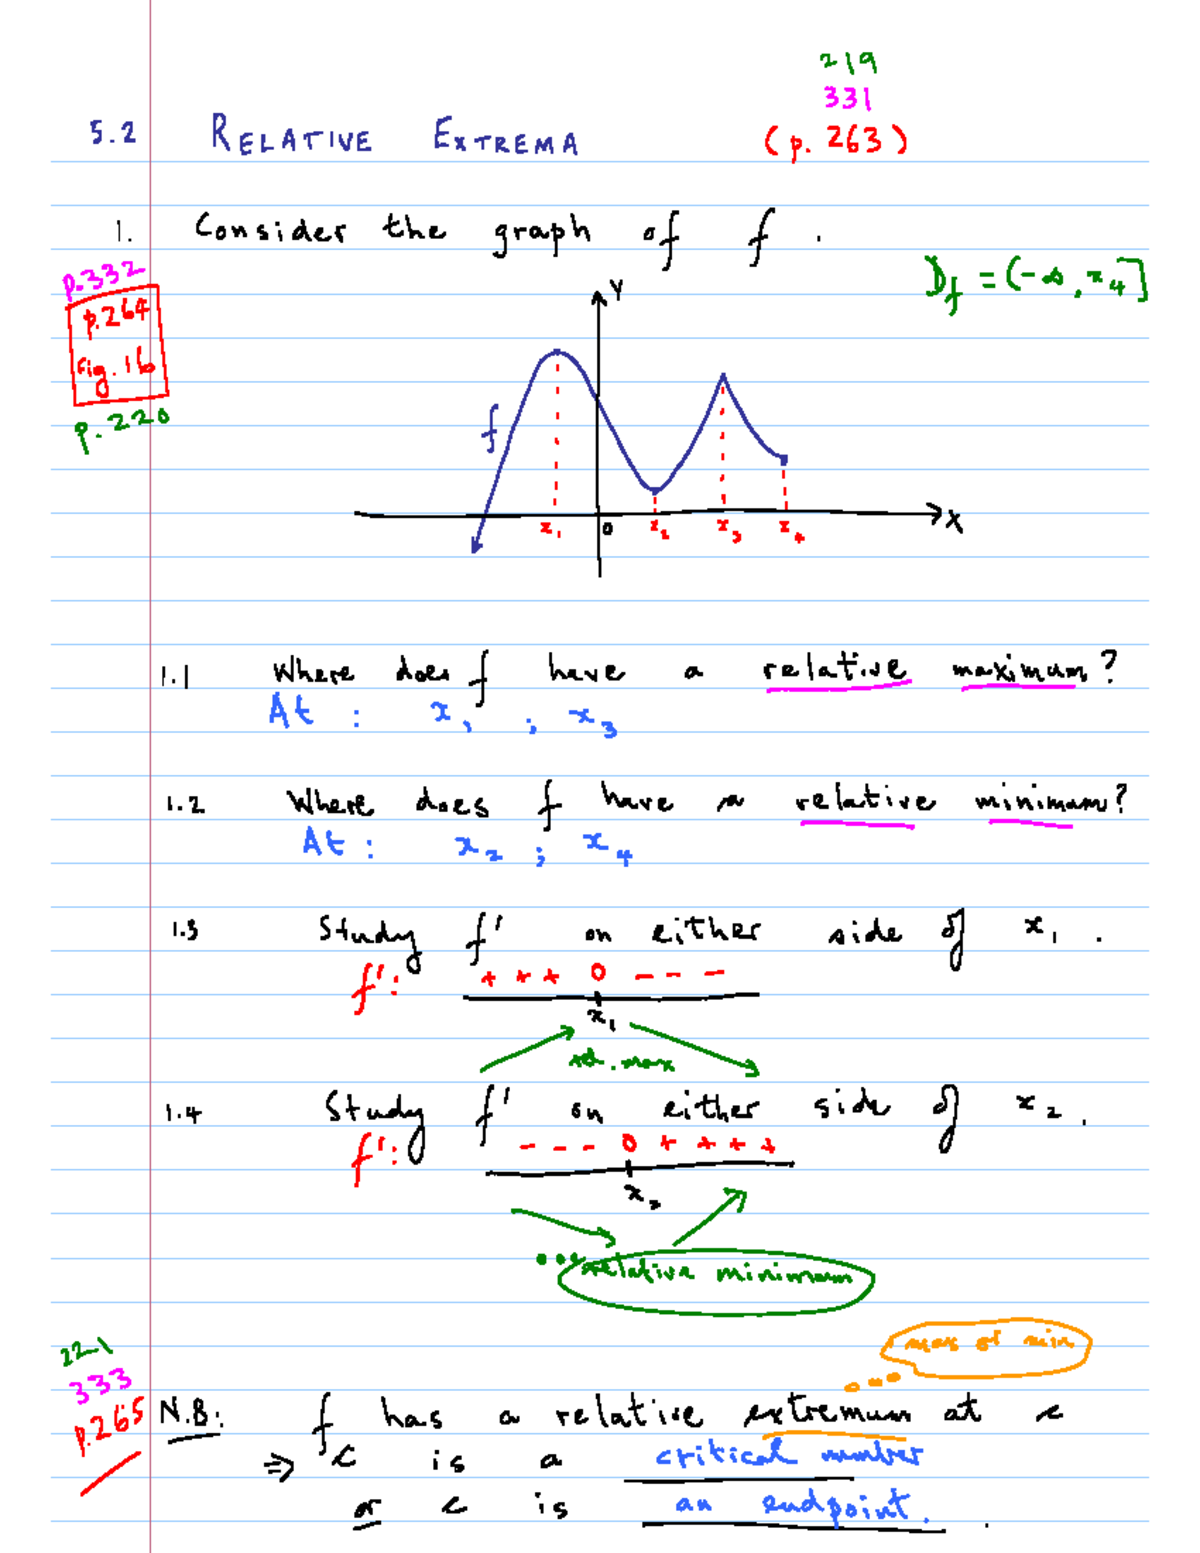 219
331
5.2 RELATIVE EXTREMA (p. 263)
1. Consider the graph of f.
p.332
p.264
Fig. 16
p.220
D_f = (-∞, x₄]
Y
f
x₁ 0 x₂ x₃ x₄ X
1.1 Where does f have a relative maximum?
At : x₁ ; x₃
1.2 Where does f have a relative minimum?
At : x₂ ; x₄
1.3 Study f' on either side of x₁.
f': + + + 0 - - -
x₁
rel. max
1.4 Study f' on either side of x₂.
f': - - - 0 + + + +
x₂
relative minimum
221
333
p.265
max or min
N.B: f has a relative extremum at c
⇒ c is a critical number
or c is an endpoint.